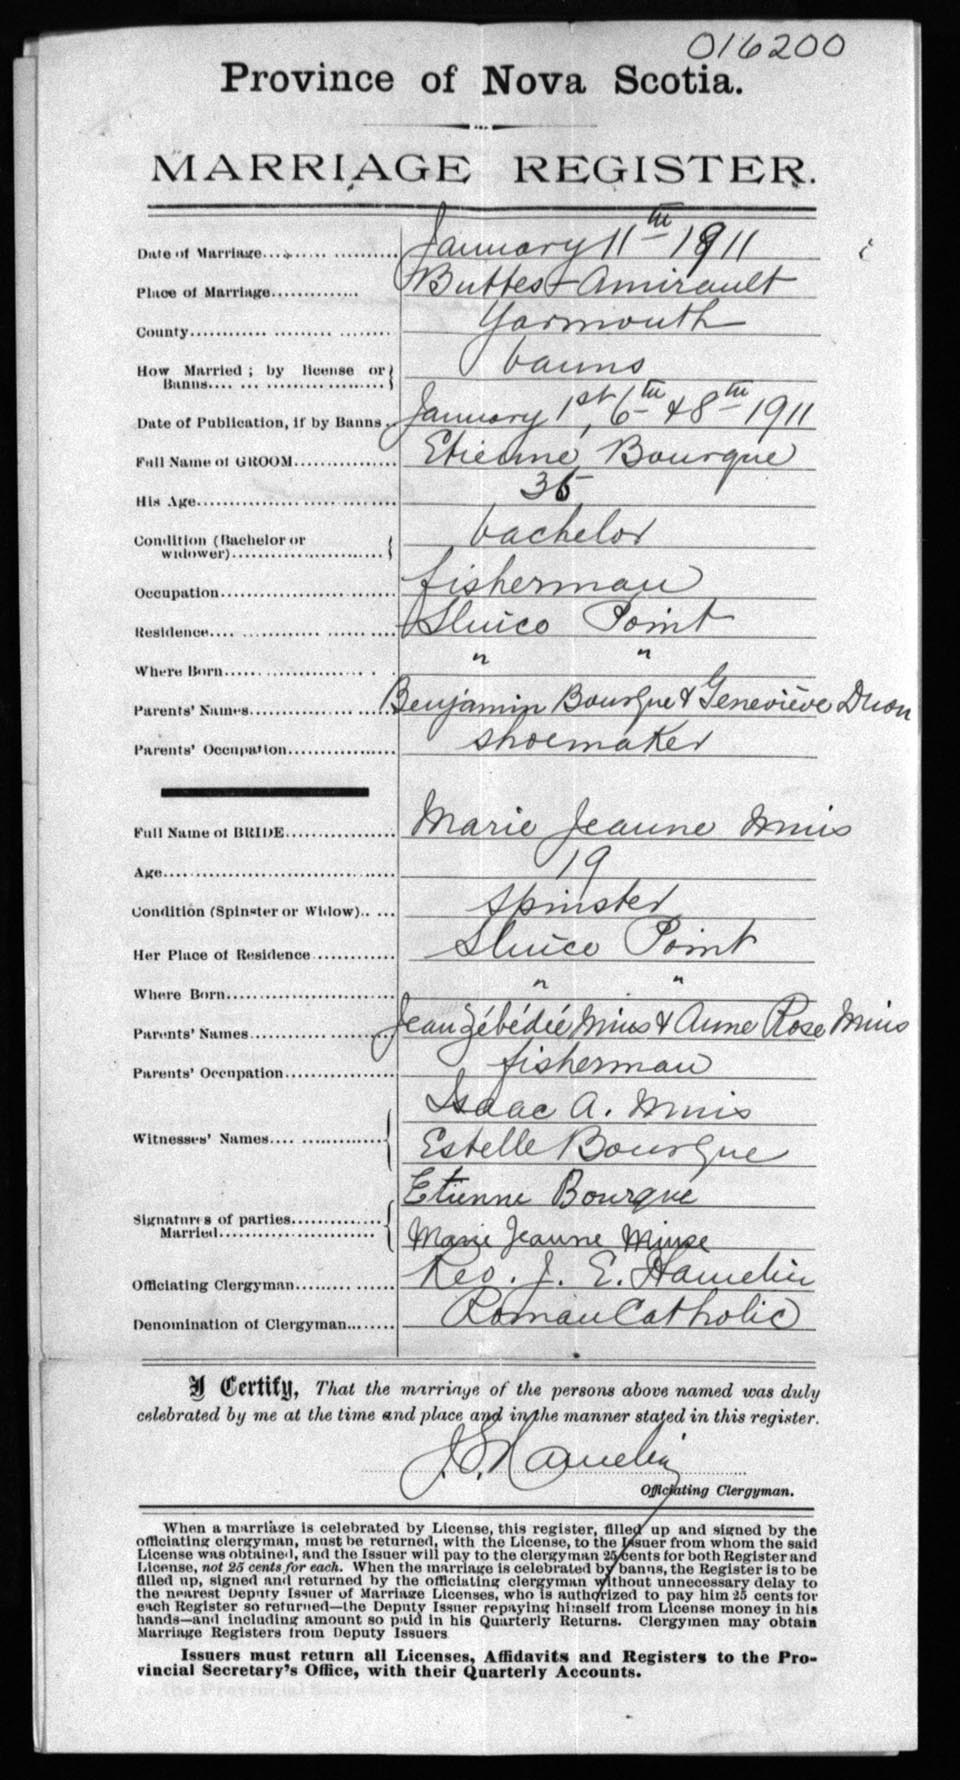 016200
Province of Nova Scotia.
MARRIAGE REGISTER.
Date of Marriage January 11th 1911
Place of Marriage Buttes-Amirault
County Yarmouth
How Married; by license or Banns banns
Date of Publication, if by Banns January 1st, 6th & 8th 1911
Full Name of GROOM Etienne Bourque
His Age
Condition (Bachelor or widower) bachelor
Occupation fisherman
Residence Sluice Point
Where Born " "
Parents' Names Benjamin Bourque & Geneviève Duon
Parents' Occupation shoemaker
Full Name of BRIDE Marie Jeanne Mius
Age 19
Condition (Spinster or Widow) spinster
Her Place of Residence Sluice Point
Where Born " "
Parents' Names Jean Zébédée Mius & Anne Rose Mius
Parents' Occupation fisherman
Witnesses' Names Isaac A. Mius
Estelle Bourque
Signatures of parties Married Etienne Bourque
Marie Jeanne Miuse
Officiating Clergyman Rev. J. E. Hamelin
Denomination of Clergyman Roman Catholic
I Certify, That the marriage of the persons above named was duly
celebrated by me at the time and place and in the manner stated in this register.
J. E. Hamelin
Officiating Clergyman.
When a marriage is celebrated by License, this register, filled up and signed by the
officiating clergyman, must be returned, with the License, to the Issuer from whom the said
License was obtained, and the Issuer will pay to the clergyman 25 cents for both Register and
License, not 25 cents for each. When the marriage is celebrated by banns, the Register is to be
filled up, signed and returned by the officiating clergyman without unnecessary delay to
the nearest Deputy Issuer of Marriage Licenses, who is authorized to pay him 25 cents for
each Register so returned—the Deputy Issuer repaying himself from License money in his
hands—and including amount so paid in his Quarterly Returns. Clergymen may obtain
Marriage Registers from Deputy Issuers
Issuers must return all Licenses, Affidavits and Registers to the Pro-
vincial Secretary's Office, with their Quarterly Accounts.